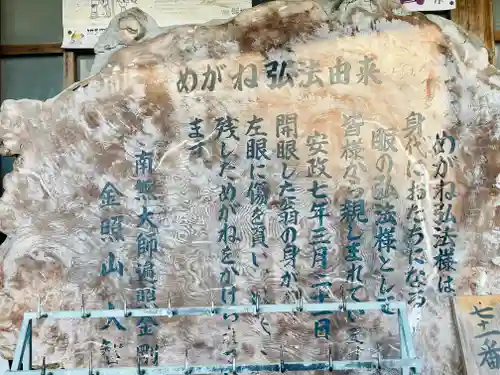 めがね弘法由来
めがね弘法様は
身代におたちになっ
眼の弘法様として
皆様から親しまれてい
安政七年三月二十一日
開眼した翁の身か
左眼に傷を負い
残しためがねをかけら
ます
南無大師遍照金剛
金照山
七十一番